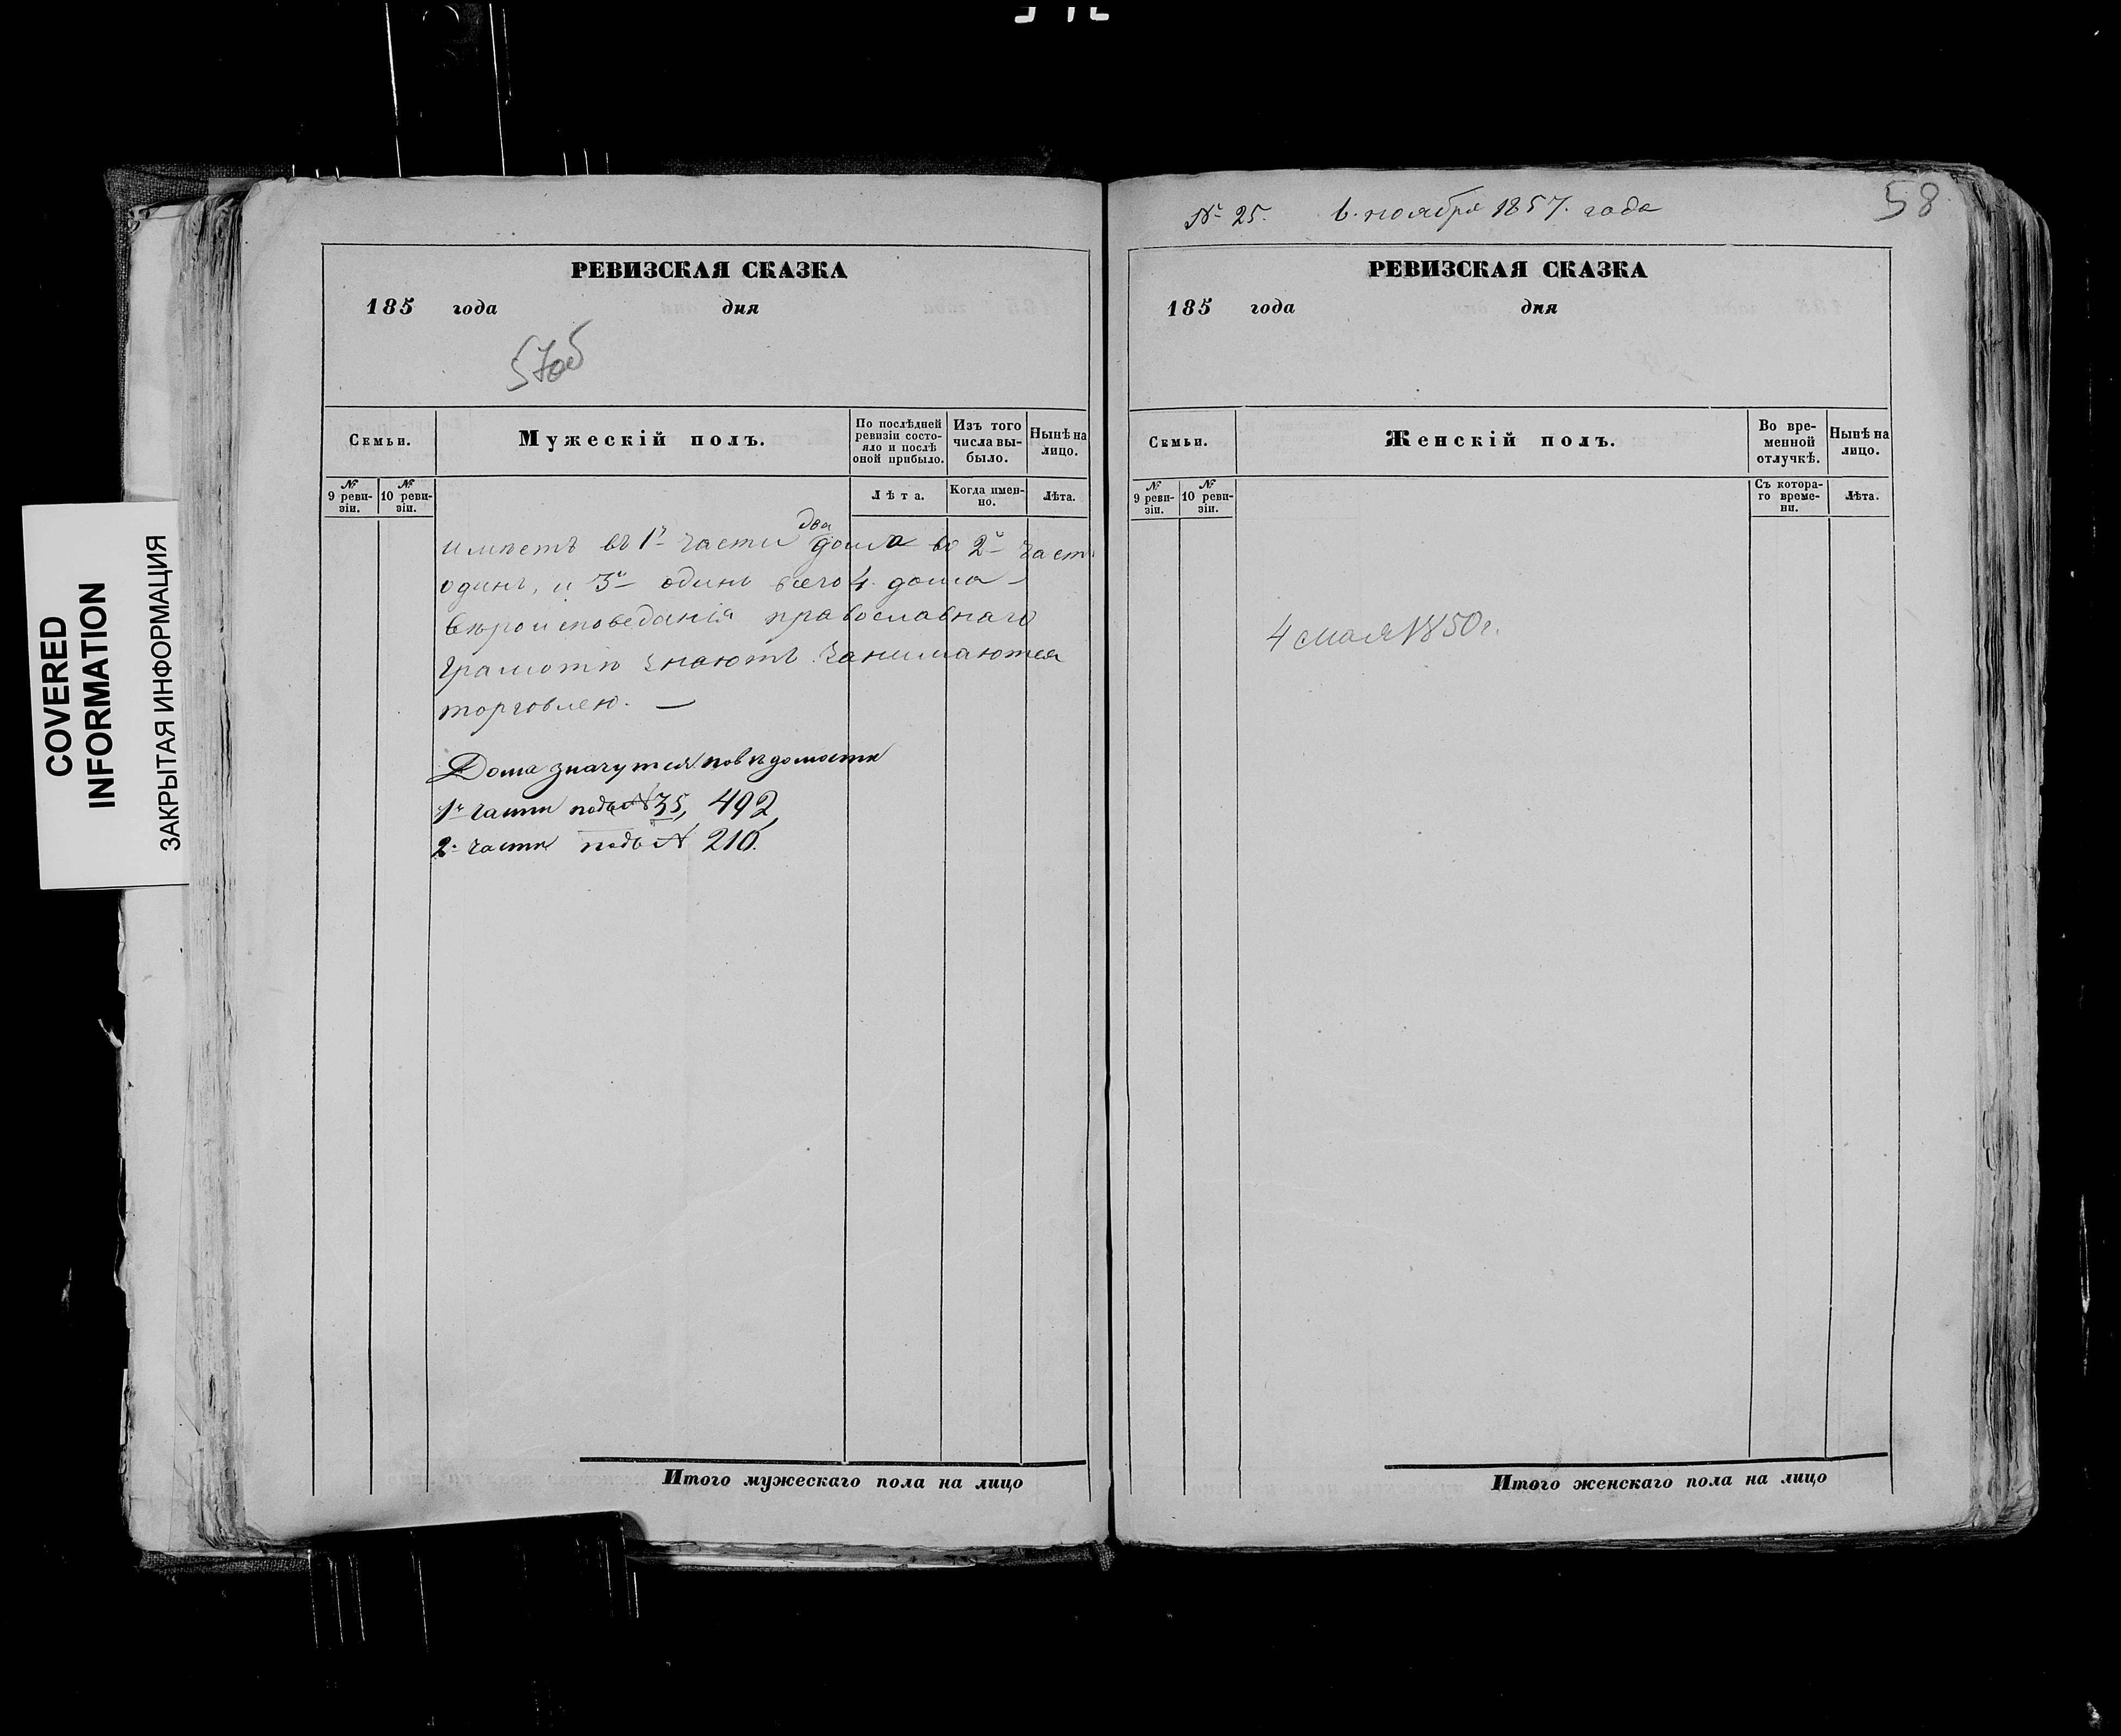 COVERED
INFORMATION
ЗАКРЫТАЯ ИНФОРМАЦИЯ
РЕВИЗСКАЯ СКАЗКА
185 года дня
57об
Семьи.
Мужескій полъ.
По послѣдней
ревизіи состо-
яло и послѣ
оной прибыло.
Изъ того
числа вы-
было.
Нынѣ на
лицо.
№
9 реви-
зіи.
№
10 реви-
зіи.
Лѣта.
Когда имен-
но.
Лѣта.
два
имѣетъ въ 1й части дома во 2й част
одинъ, и 3й одинъ всего 4. дома —
вѣроисповеданія православнаго
грамотѣ знаютъ. Занимаются
торговлею. —
Дома значутся по вѣдомости
1й части подъ № 35, 492,
2й части подъ № 210.
Итого мужескаго пола на лицо
№ 25. 6. ноября 1857. года
58
РЕВИЗСКАЯ СКАЗКА
185 года дня
Семьи.
Женскій полъ.
Во вре-
менной
отлучкѣ.
Нынѣ на
лицо.
№
9 реви-
зіи.
№
10 реви-
зіи.
Съ котора-
го време-
ни.
Лѣта.
4 мая 1850г.
Итого женскаго пола на лицо